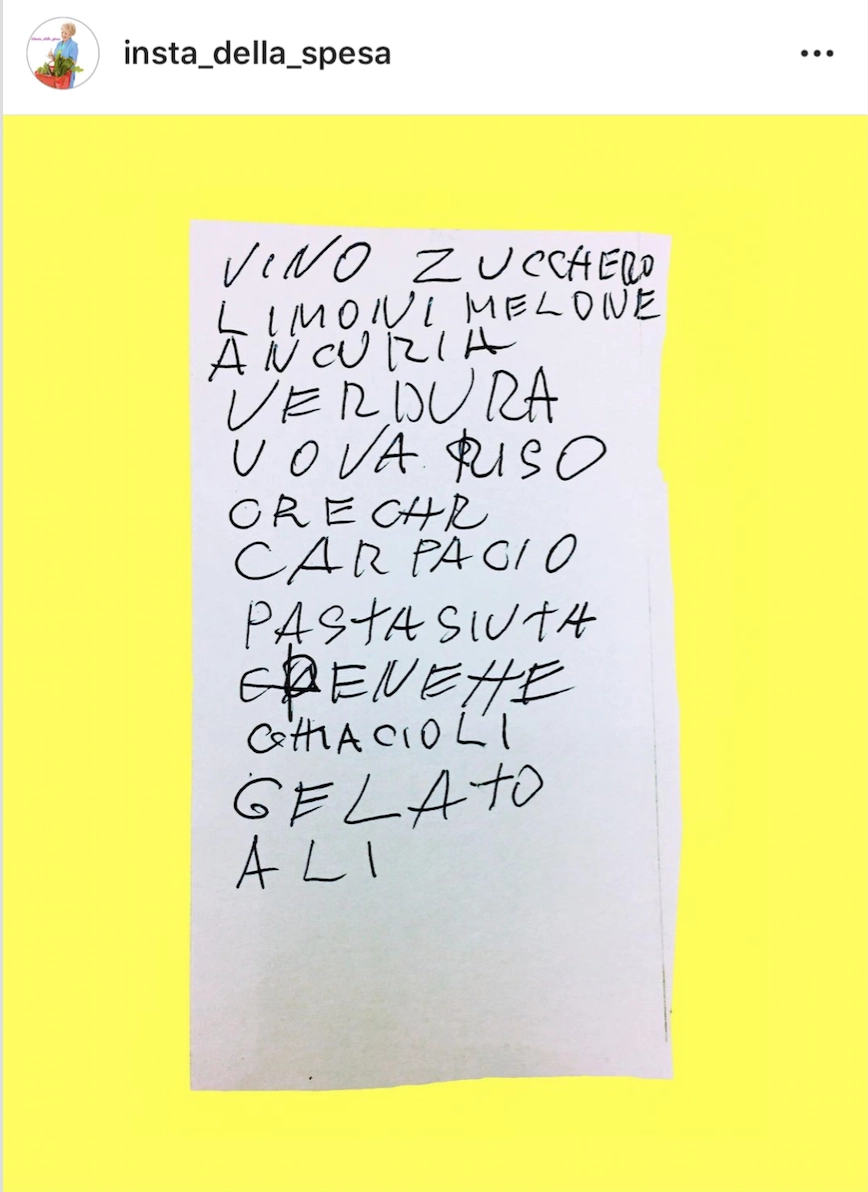 insta_della_spesa
VINO ZUCCHERO
LIMONI MELONE
ANCURIA
VERDURA
UOVA RISO
ORECHR
CARPACIO
PASTASIUTA
GHIACIOLI
GELATO
ALI